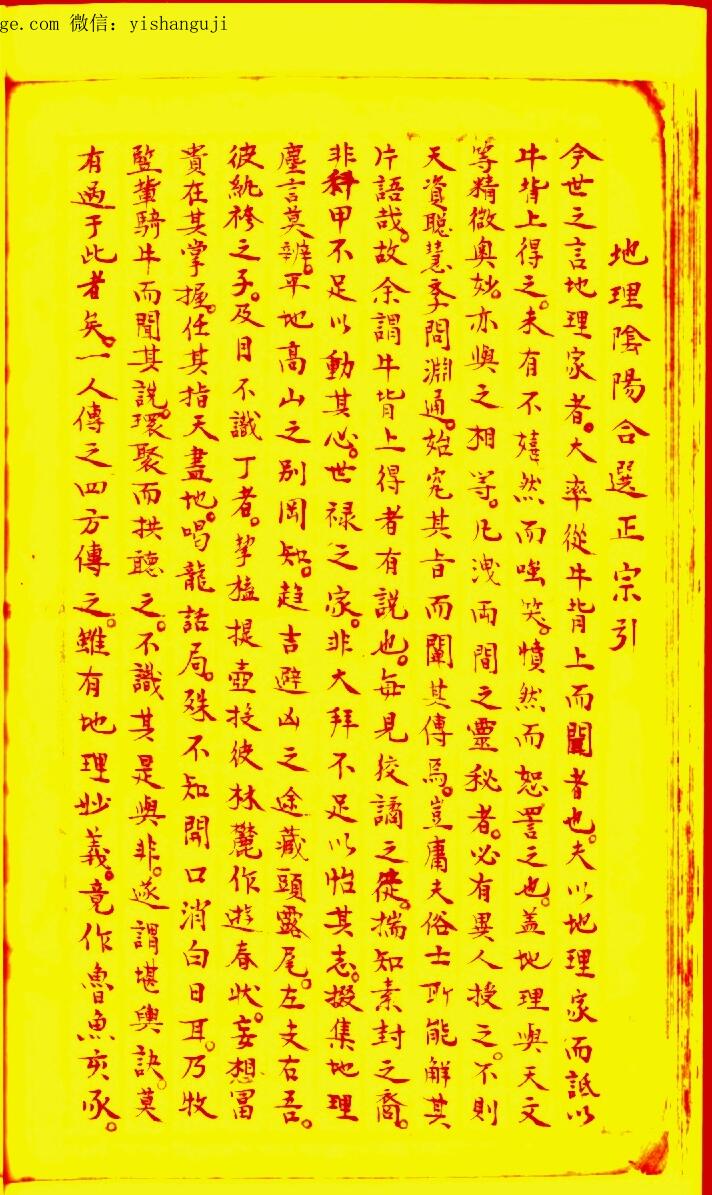 ge.com 微信：yishanguji
地理陰陽合選正宗引
今世之言地理家者。大率從牛背上而闡者也。夫以地理家而詆以
牛背上得之。未有不嬉然而嗤笑。憤然而恕詈之也。盖地理與天文
等精微奥妙。亦與之相等。凡洩両間之靈秘者。必有異人授之。不則
天資聡慧季問淵通。始究其旨而闡其傳焉。豈庸夫俗士所能解其
片語哉。故余謂牛背上得者有説也。每見狡譎之徒。揣知素封之裔。
非科甲不足以動其心。世禄之家。非大拜不足以怡其志。掇集地理
塵言莫辨。平地高山之别罔知。趋吉避凶之途藏頭露尾。左支右吾。
彼紈袴之子。及目不識丁者。挈榼提壺投彼林麓作遊春状。妄想冨
貴在其掌握。任其指天畫地。喝龍話局。殊不知開口消白日耳。乃牧
豎輩騎牛而聞其説。環聚而拱聽之。不識其是與非。遂謂堪輿訣。莫
有过于此者矣。一人傳之四方傳之。雖有地理妙義。竟作魯魚亥豕。